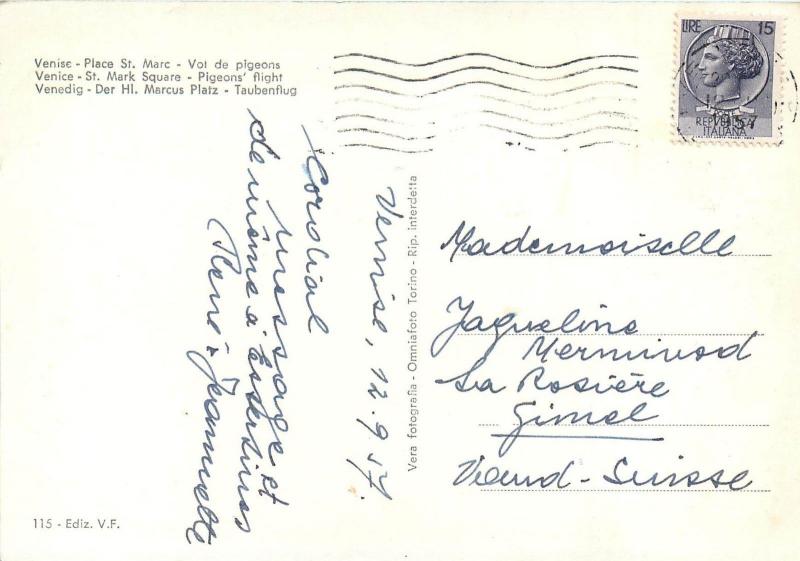 Venise - Place St. Marc - Vol de pigeons
Venice - St. Mark Square - Pigeons' flight
Venedig - Der Hl. Marcus Platz - Taubenflug
LIRE 15
REPVBBLICA
ITALIANA
1957
Venise, 12.9.57.
Cordial
message et
de même à
René + Jeannette
Vera fotografia - Omniafoto Torino - Rip. interdetta
Mademoiselle
Jaqueline
Merminod
La Rosière
Gimel
Vaud - Suisse
115 - Ediz. V.F.